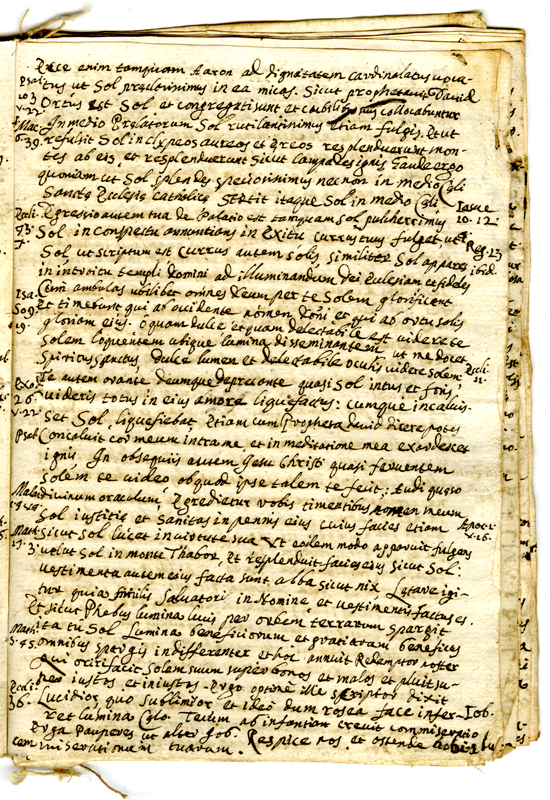 Ecce enim tamquam Aaron ad dignitatem cardinalatus voca-
Psal. tus ut Sol pręclarissimus in ea micas. Sicut prophetavit David
103 Ortus est Sol et congregati sunt et cubilibus collocabuntur
v. 22
1 Mac. In medio Pręlatorum Sol rutilantissimus etiam fulgis, et ut
6. 39. refulsit Sol in clypeos aureos et ęreos resplenduerunt mon-
tes ab eis, et resplenduerunt sicut lampades ignis. Gaude ergo
quoniam ut Sol splendes speciosissimus necnon in medio Cęli
Sanctę Ecclesię Catholicę. Stetit itaque Sol in medio Cęli Iosue
Eccli. Egressio autem tua de Palatio est tamquam sol pulcherrimus 10. 12.
43. Sol in conspectu annuntians in exitu currus tuus fulget ut
Sol ut scriptum est currus autem solis similiter Sol appares 4 Reg. 23
in introitu templi Domini ad illuminandum Dei Ecclesiam et fideles ibid.
Isa. Cum ambulas utiliter omnes Deum per te Solem glorificent
59. Et timebunt qui ab occidente nomen Dni et qui ab ortu solis
19. gloriam eius. O quam dulce et quam delectabile est videre te
Solem loquentem utique lumina disseminantem ut me docet
Spiritus Sanctus, dulce lumen et delectabile oculis videre solem. Eccli.
11.
Exo. Te autem orante deumque deprecante quasi Sol intus et foris
26. videris totus in eius amore liquefactus: cumque incaluis-
v. 22 set Sol, liquefiebat. Etiam cum Propheta David dicere potes
Psal. Concaluit cor meum intra me et in meditatione mea exardescet
ignis. In obsequiis autem Jesu Christi quasi ferventem
Solem te video ob quod ipse talem te fecit; Audi quęso
Mala. divinum oraculum, Egredietur vobis timentibus nomen meum
Sol iustitię et sanitas in pennis eius cuius facies etiam Apoc. 1
Math. sicut Sol lucet in virtute sua et eodem modo apparuit fulgens v. 16.
17. 3 velut Sol in monte Thabor, et resplenduit facies eius sicut Sol:
vestimenta autem eius facta sunt alba sicut nix. Lętare igi-
tur quia similis Salvatori in Nomine, et vestimentis factus es.
Et sicut Phebus lumina lucis per orbem terrarum spargit
ita tu Sol Lumina beneficiorum et gratiarum benefices
Math. omnibus spargis indifferenter et hoc annuit Redemptor noster
5. 45. qui oriri facit Solem suum super bonos et malos et pluit su-
per iustos et iniustos. Ergo optime ille scriptor dixit
Lucidior quo sublimior et ideo dum rosea face infer-
ret lumina Cęlo. Tecum ab infantia crevit commiseratio Iob.
Erga Pauperes ut alter Iob. Respice nos, et ostende nobis lu-
cem miserationum tuarum.